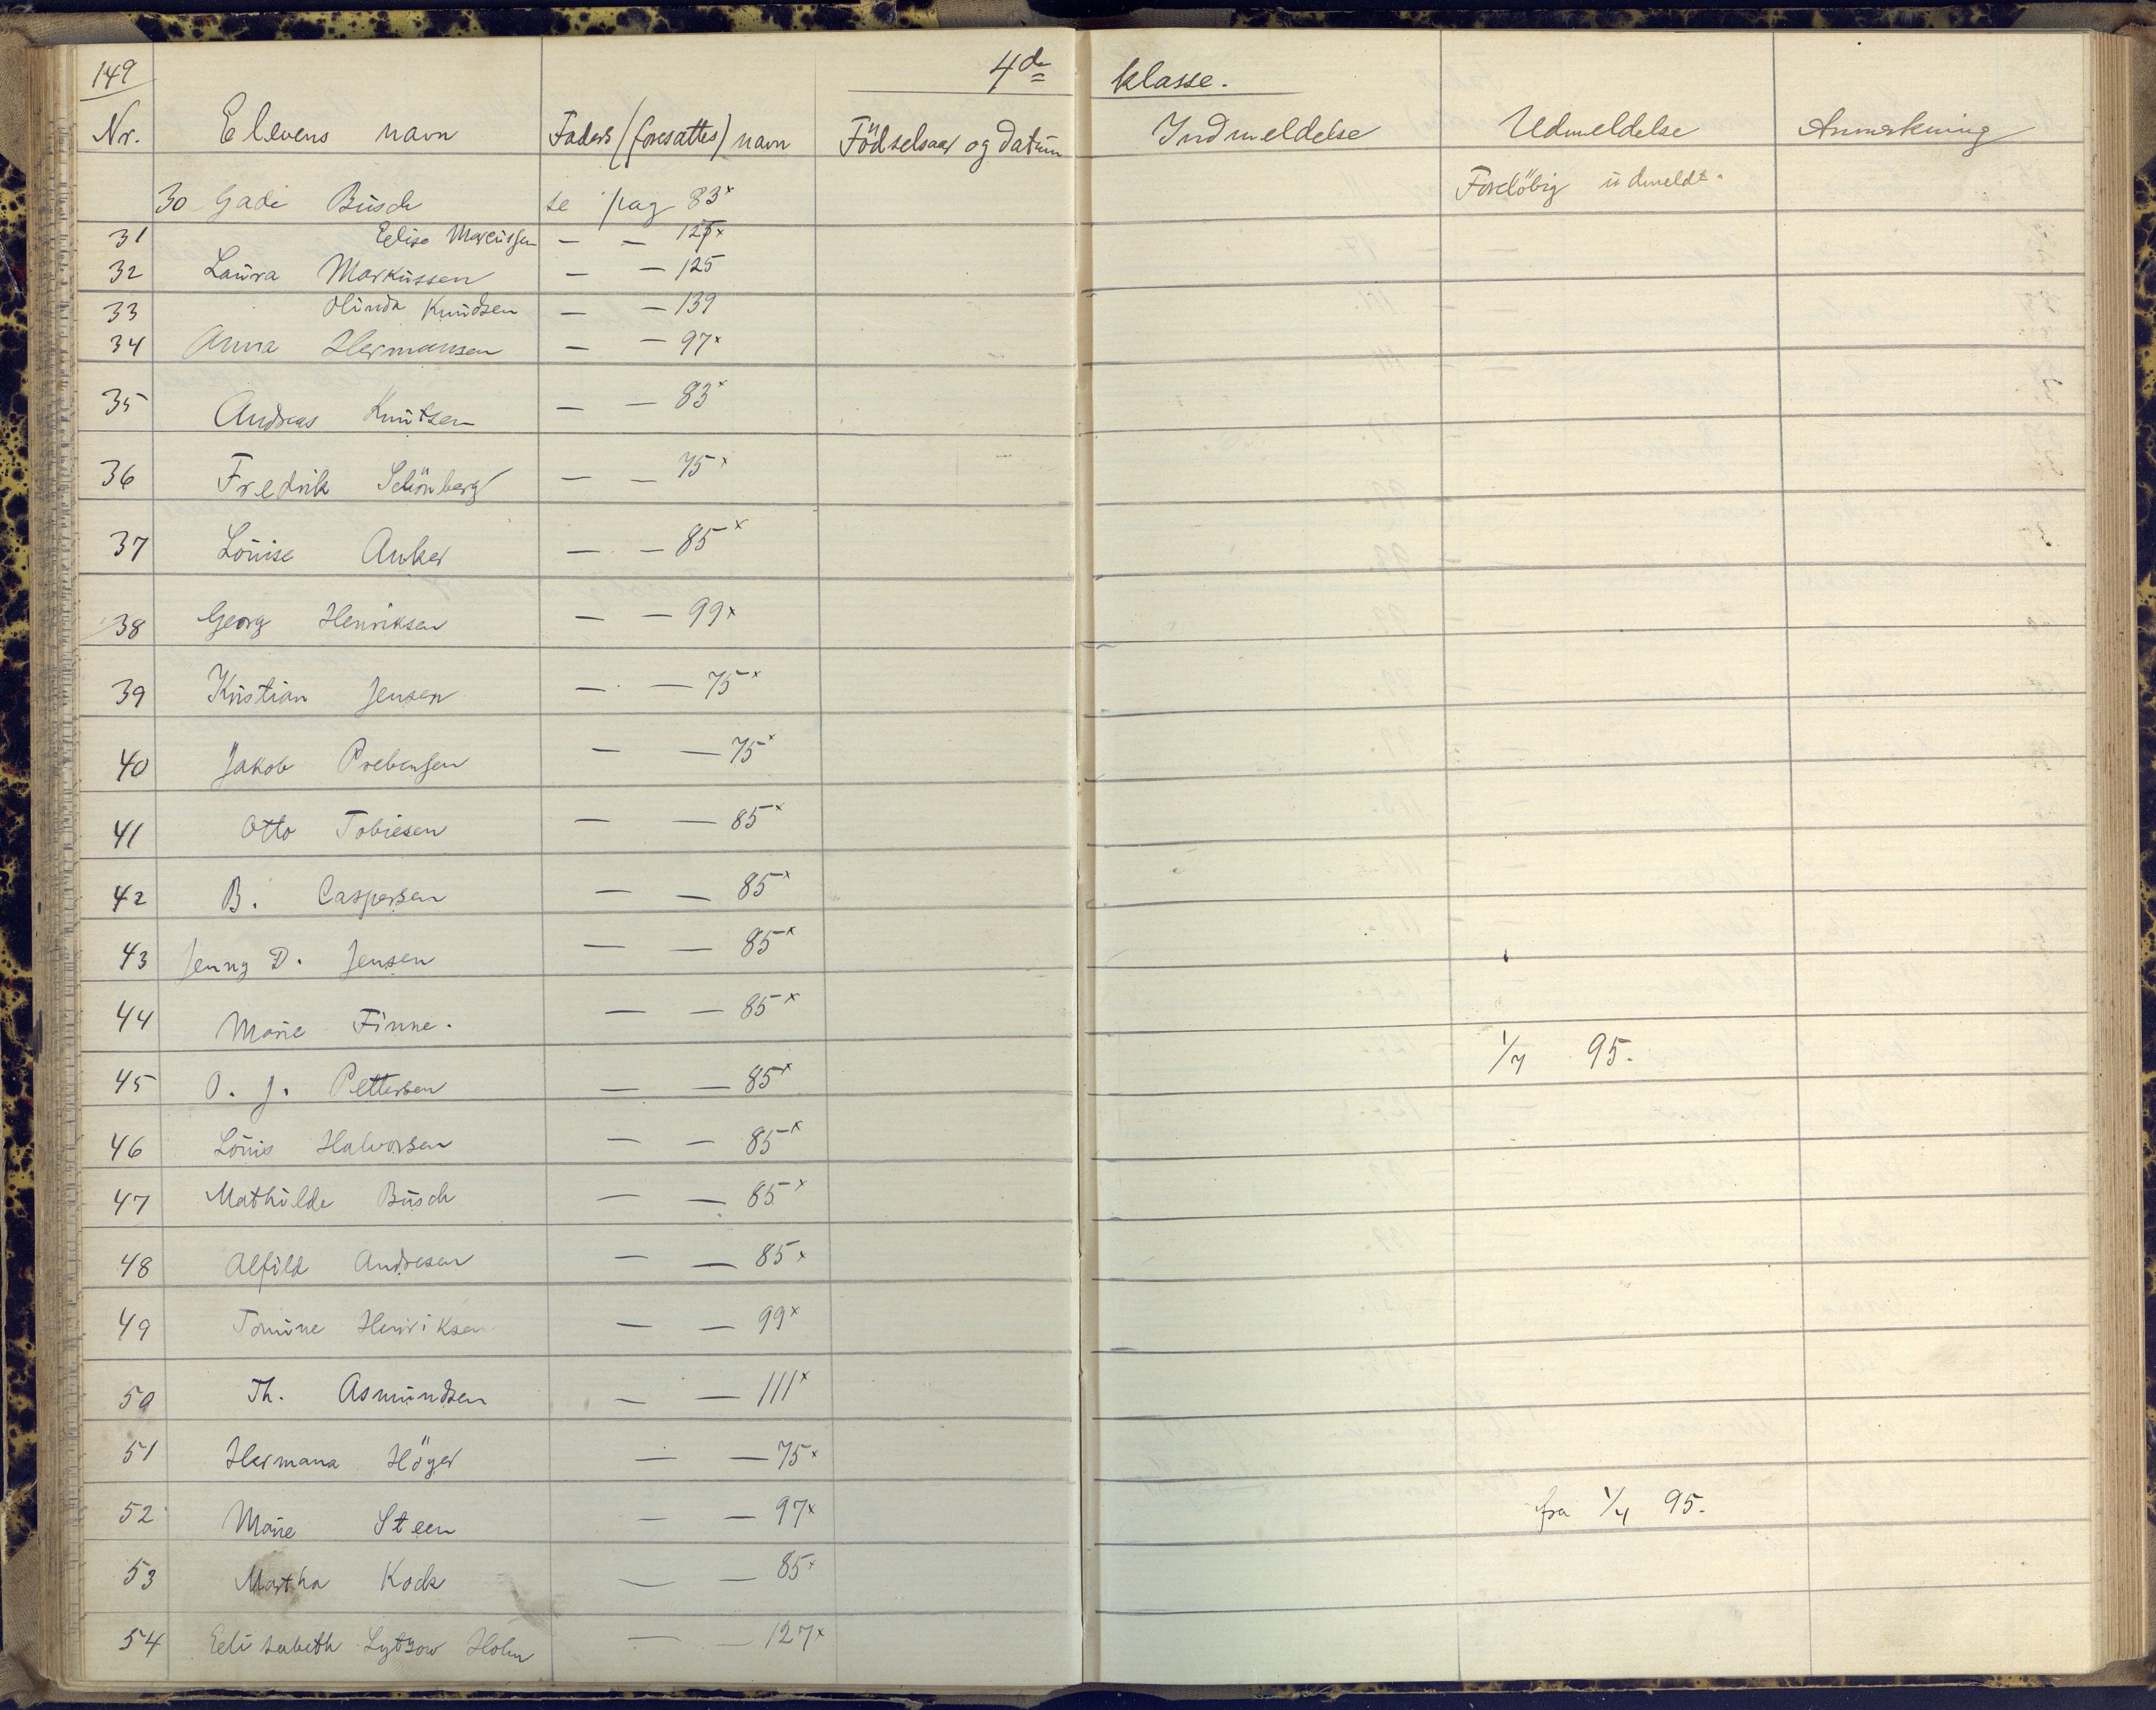 149 4de klasse.
Nr. Elevens navn Faders (foresattes) navn Födselsaar og datum Indmeldelse Udmeldelse Anmerkning
30 Gadi Busch se pag 83x Foreløbig udmeldt.
31 Elise Marcussen — — 125x
32 Laura Markussen — — 125
33 Olinda Knudsen — — 139
34 Anna Hermansen — — 97x
35 Andreas Knutsen — — 83x
36 Fredrik Schönberg — — 75x
37 Louise Anker — — 85x
38 Georg Henriksen — — 99x
39 Kristian Jensen — — 75x
40 Jakob Prebensen — — 75x
41 Otto Tobiesen — — 85x
42 B. Caspersen — — 85x
43 Jenny D. Jensen — — 85x
44 Marie Finne. — — 85x
45 O. J. Pettersen — — 85x 1/7 95.
46 Louis Halvorsen — — 85x
47 Mathilde Busch — — 85x
48 Alfild Andresen — — 85x
49 Tomine Henriksen — — 99x
50 Th. Asmundsen — — 111x
51 Hermana Höyer — — 75x
52 Marie Steen — — 97x fra 1/4 95.
53 Martha Kock — — 85x
54 Elisabeth Lytzow Holm — — 127x